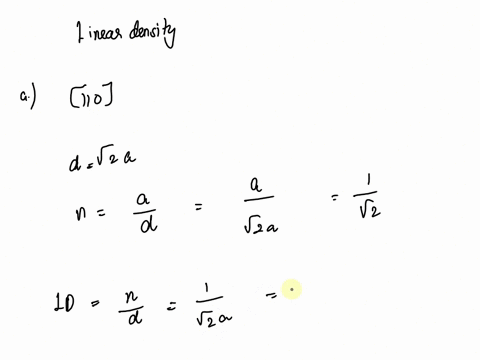 Linear density
a.) [110]
d = √2 a
n = a/d = a/√2a = 1/√2
LD = n/d = 1/√2a =